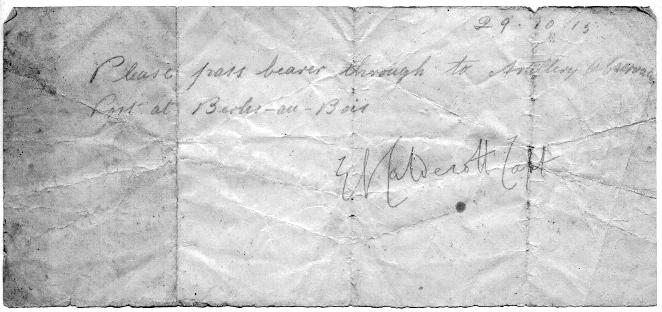 29.10.15
Please pass bearer through to Artillery Observ
Post at Berles-au-Bois
Capt